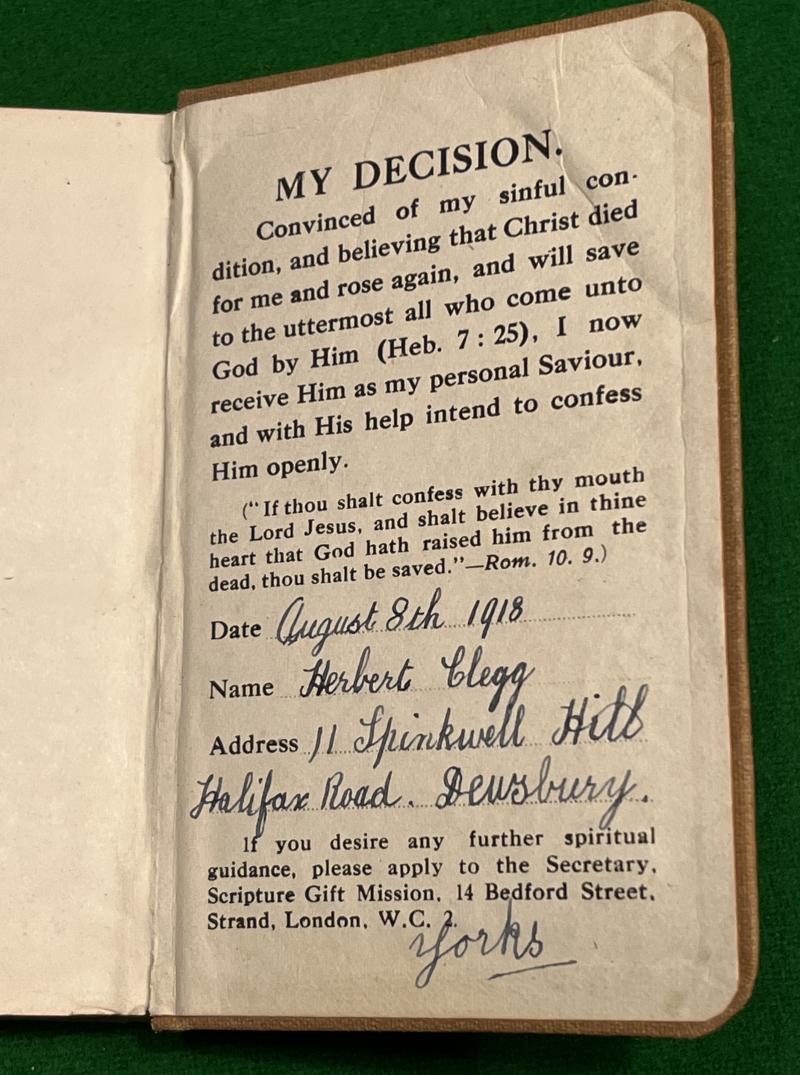 MY DECISION.
Convinced of my sinful con-
dition, and believing that Christ died
for me and rose again, and will save
to the uttermost all who come unto
God by Him (Heb. 7 : 25), I now
receive Him as my personal Saviour,
and with His help intend to confess
Him openly.
("If thou shalt confess with thy mouth
the Lord Jesus, and shalt believe in thine
heart that God hath raised him from the
dead, thou shalt be saved."—Rom. 10. 9.)
Date August 8th 1918
Name Herbert Clegg
Address 11 Spinkwell Hill
Halifax Road. Dewsbury.
If you desire any further spiritual
guidance, please apply to the Secretary,
Scripture Gift Mission, 14 Bedford Street,
Strand, London, W.C. 2.
Yorks